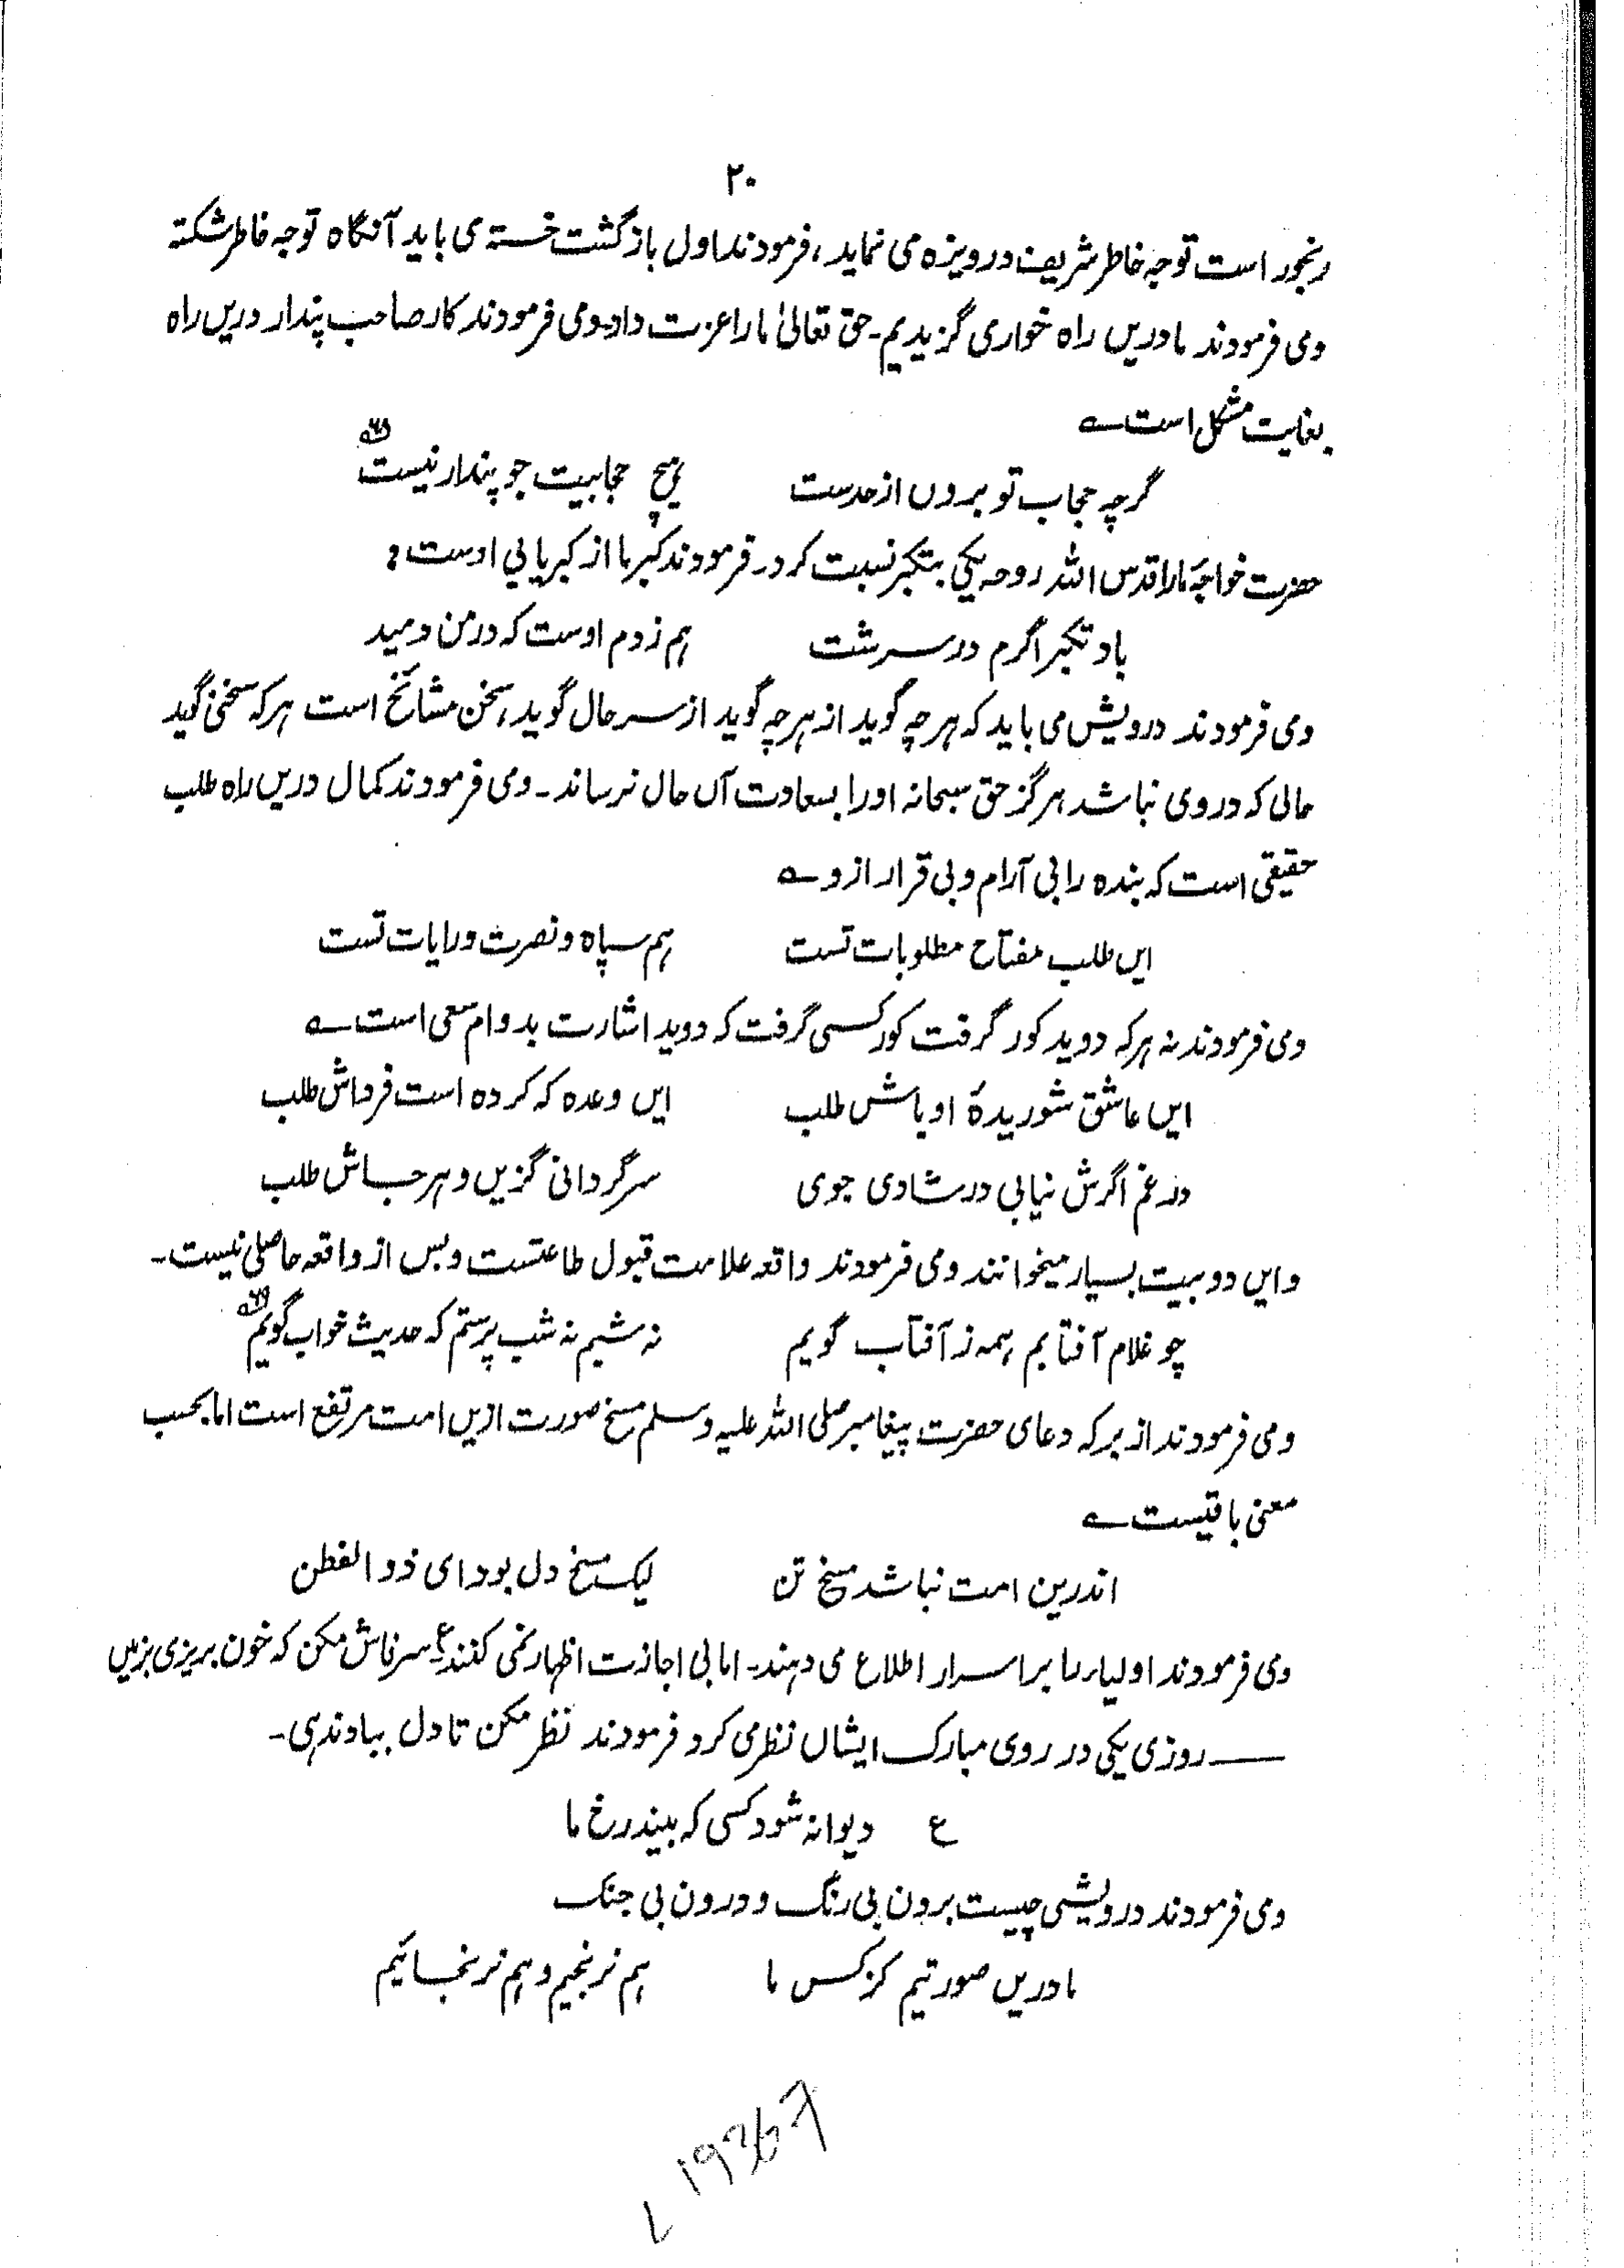 ۲۰
رنجور است توجه خاطر شریف در ویزه می نماید، فرمودند اول بازگشت خسته می باید آنگاه توجه خاطر شکته
ومی فرمودند مادریں راه خواری گزیدیم۔ حق تعالیٰ مارا عزت داد۔ ومی فرمودند کار صاحب پندار دریں راه
بغایت مشکل است ؎
گرچه حجاب تو بروں از حدست هیچ حجابیت چو پندار نیست
حضرت خواجه مارا قدس الله روحه یکی بتکبر نسبت کرد۔ فرمودند کبر ما از کبریایی اوست :
باد تکبر اگرم در سرشت هم زدم اوست که در من دمید
ومی فرمودند درویش می باید که هر چه گوید از هر چه گوید از سر حال گوید، سخن مشائخ است هر که سخنی گوید
حالی که در وی نباشد هرگز حق سبحانه اورا بسعادت آں حال نرساند۔ ومی فرمودند کمال دریں راه طلب
حقیقی است که بنده را بی آرام و بی قرار ازو ؎
ایں طلب مفتاح مطلوبات تست هم سپاه و نصرت ورایات تست
ومی فرمودند نه هر که دوید گور گرفت گور کسی گرفت که دوید اشارت بدوام سعی است ؎
ایں عاشق شوریدهٔ اوباش طلب ایں وعده که کرده است فرداش طلب
در غم اگرش نیابی در شادی جوی سرگردانی گزیں و هر جاش طلب
وایں دو بیت بسیار میخوانند ومی فرمودند واقعه علامت قبول طاعتست وبس از واقعه حاصلی نیست۔
چو غلام آفتابم همه ز آفتاب گویم نه شبم نه شب پرستم که حدیث خواب گویم
ومی فرمودند از برکه دعای حضرت پیغامبر صلی الله علیه وسلم مسخ صورت ازیں امت مرتفع است اما بحسب
معنی باقیست ؎
اندرین امت نباشد مسخ تن لیک مسخ دل بود ای ذوالفطن
ومی فرمودند اولیاء را بر اسرار اطلاع می دهند۔ اما بی اجازت اظهار نمی کنند ع سر فاش مکن که خون بریزی بزمیں
—— روزی یکی در روی مبارک ایشاں نظر می کرد فرمودند نظر مکن تا دل بباد ندهی۔
ع دیوانه شود کسی که بیند رخ ما
ومی فرمودند درویشی چیست برون بی رنگ و درون بی جنگ
مادریں صورتیم کز کس ما هم نرنجیم و هم نرنجائیم
19367